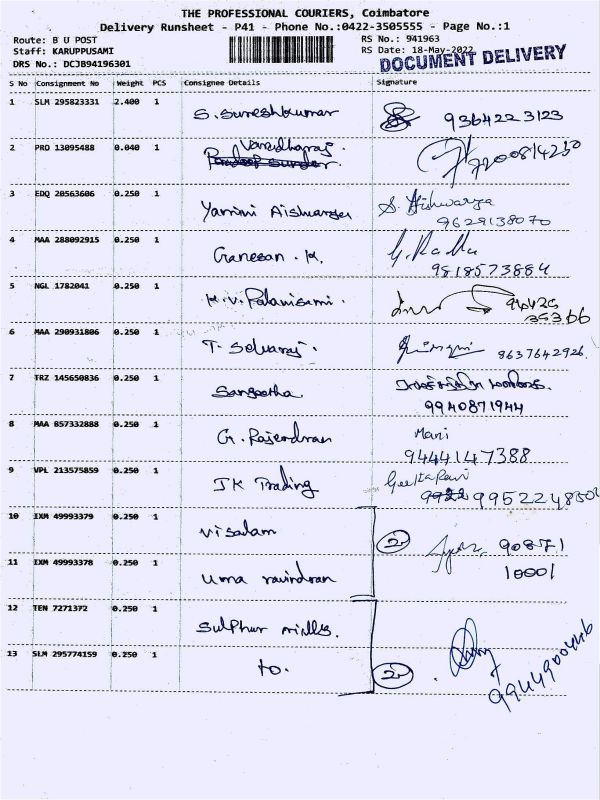 THE PROFESSIONAL COURIERS, Coimbatore
Delivery Runsheet - P41 - Phone No.:0422-3505555 - Page No.:1
Route: B U POST
Staff: KARUPPUSAMI
DRS No.: DCJB94196301
RS No.: 941963
RS Date: 18-May-2022
DOCUMENT DELIVERY
S No Consignment No Weight PCS Consignee Details Signature
1 SLM 295823331 2.400 1 S. Sureshkumar 9364223123
2 PRO 13095488 0.040 1 Varadharaj
3 EDQ 20563606 0.250 1 Yamini Aishwarya S. Aishwarya
9629138070
4 MAA 288092915 0.250 1 Ganesan . K. G. Radha
9818573884
5 NGL 1782041 0.250 1 K.V. Palanisami . 94426
35366
6 MAA 290931806 0.250 1 T. Selvaraj . 8637642926
7 TRZ 145650836 0.250 1 Sangeetha
9940871944
8 MAA 857332888 0.250 1 G. Rajendran Mani
9444147388
9 VPL 213575859 0.250 1 JK Trading Geetha Ravi
995224850
10 IXM 49993379 0.250 1 Visalam 2 90871
11 IXM 49993378 0.250 1 Uma ravindran 10001
12 TEN 7271372 0.250 1 Sulphur mills.
13 SLM 295774159 0.250 1 to. 2 9944900446